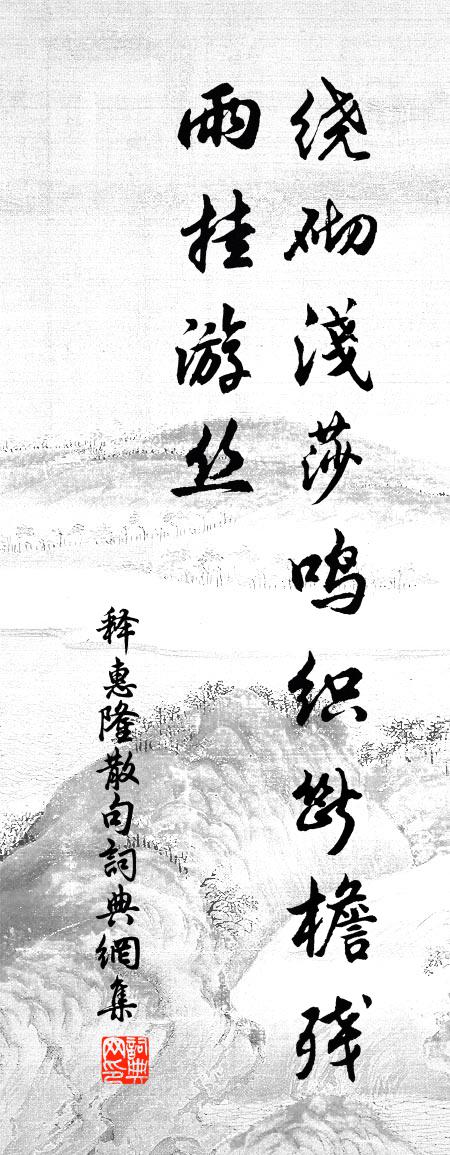 绕砌淺莎鸣织断檐残
雨挂游丝
释惠隆散句詞典網集
詞典网印